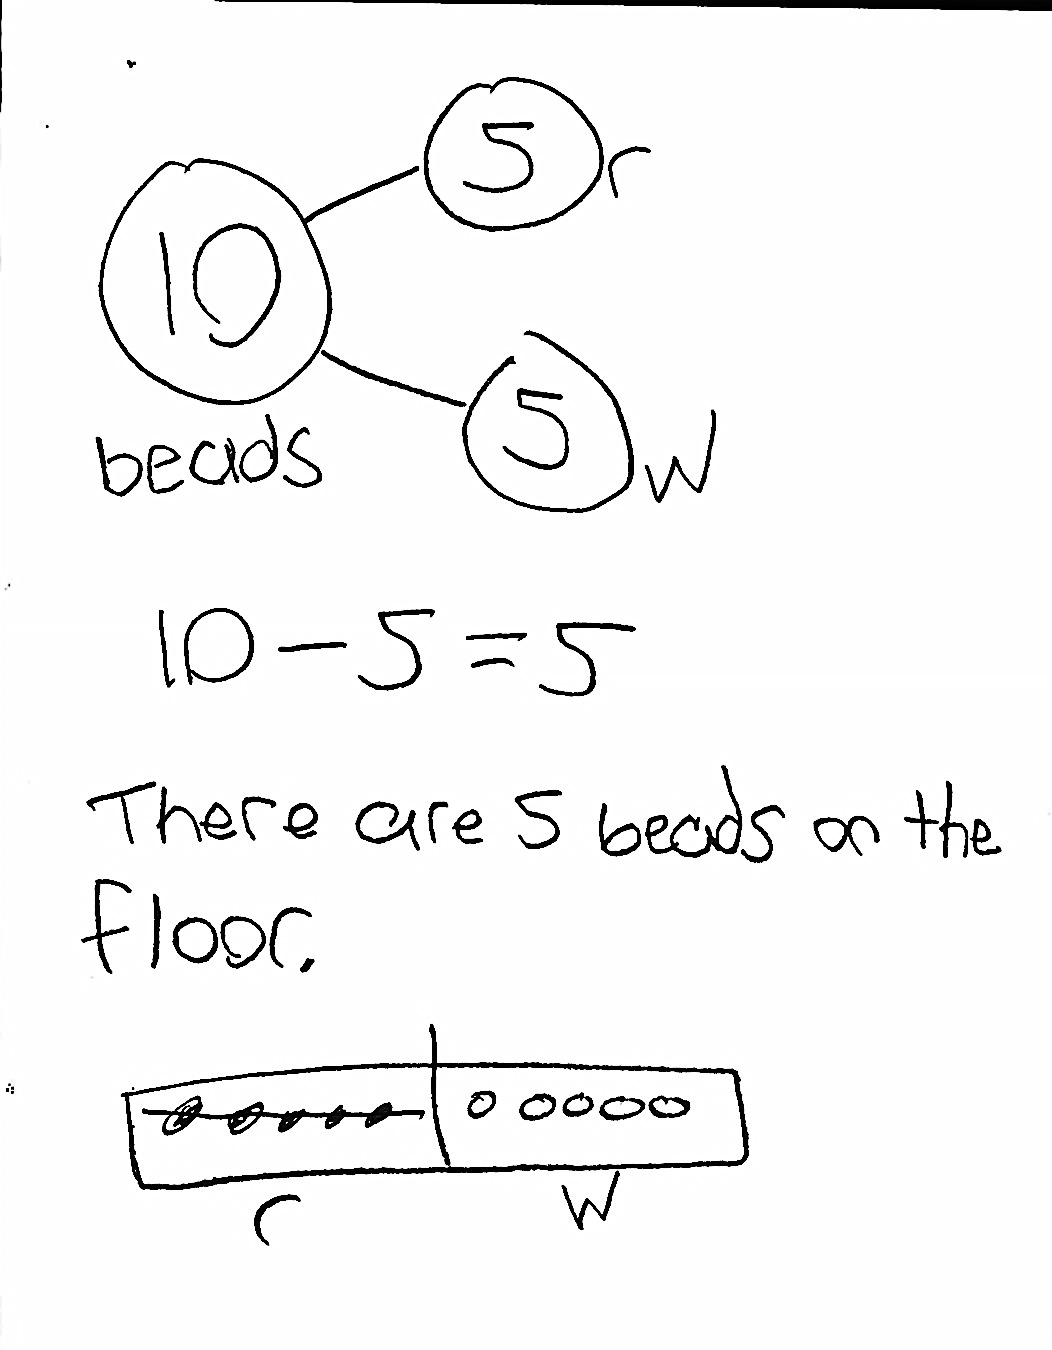 5 r
10
beads
5 W
10 - 5 = 5
There are 5 beads on the
floor.
r W